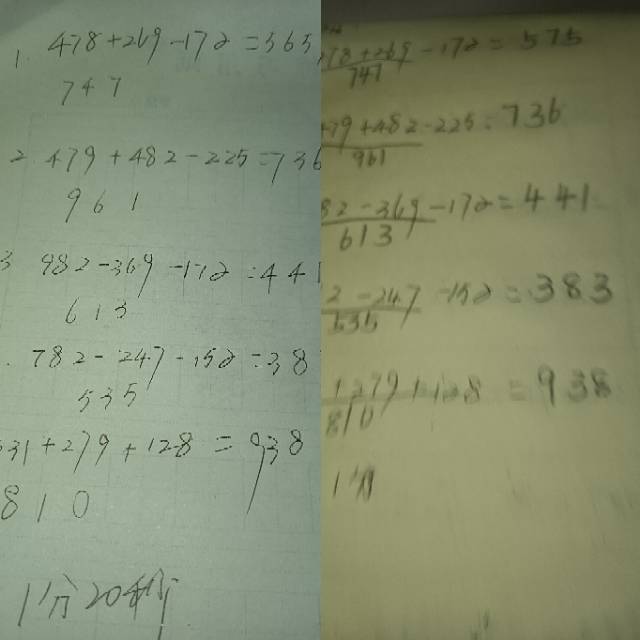 1. 478+269-172=565
747
2. 479+482-225=736
961
3 982-369-172=441
613
782-247-152=38
535
531+279+128=938
810
1分20秒
78+269-172=575
747
79+482-225=736
961
82-369-172=441
613
2-247-152=383
535
+279+128=938
810
1分